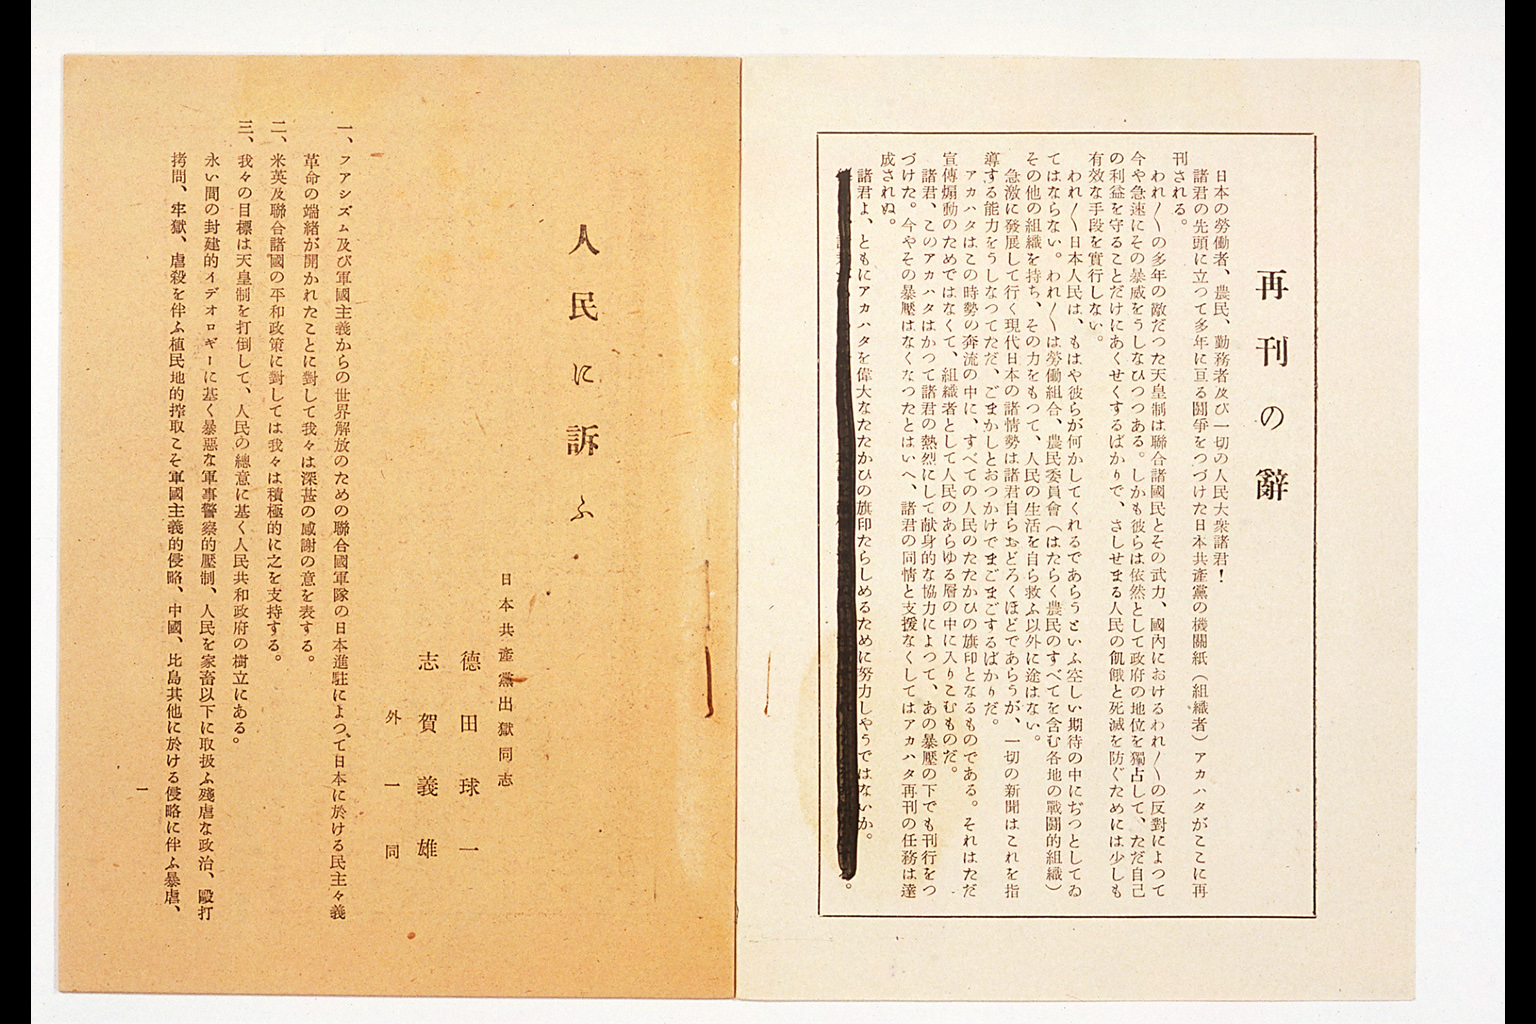 再刊の辭
日本の勞働者、農民、勤務者及び一切の人民大衆諸君!
諸君の先頭に立つて多年に亘る鬪爭をつづけた日本共産黨の機關紙(組織者)アカハタがここに再
刊される。
われ〳〵の多年の敵だつた天皇制は聯合諸國民とその武力、國內におけるわれ〳〵の反對によつて
今や急速にその暴威をうしなひつつある。しかも彼らは依然として政府の地位を獨占して、ただ自己
の利益を守ることだけにあくせくするばかりで、さしせまる人民の飢餓と死滅を防ぐためには少しも
有效な手段を實行しない。
われ〳〵日本人民は、もはや彼らが何かしてくれるであらうといふ空しい期待の中にぢつとしてゐ
てはならない。われ〳〵は勞働組合、農民委員會(はたらく農民のすべてを含む各地の戰鬪的組織)
その他の組織を持ち、その力をもつて、人民の生活を自ら救ふ以外に途はない。
急激に發展して行く現代日本の諸情勢は諸君自らおどろくほどであらうが、一切の新聞はこれを指
導する能力をうしなつてただ、ごまかしとおつかけでまごまごするばかりだ。
アカハタはこの時勢の奔流の中に、すべての人民のたたかひの旗印となるものである。それはただ
宣傳煽動のためではなくて、組織者として人民のあらゆる層の中に入りこむものだ。
諸君、このアカハタはかつて諸君の熱烈にして献身的な協力によつて、あの暴壓の下でも刊行をつ
づけた。今やその暴壓はなくなつたとはいへ、諸君の同情と支援なくしてはアカハタ再刊の任務は達
成されぬ。
諸君よ、ともにアカハタを偉大なたたかひの旗印たらしめるために努力しやうではないか。
人民に訴ふ
日本共産黨出獄同志
德田球一
志賀義雄
外一同
一、フアシズム及び軍國主義からの世界解放のための聯合國軍隊の日本進駐によつて日本に於ける民主々義
革命の端緒が開かれたことに對して我々は深甚の感謝の意を表する。
二、米英及聯合諸國の平和政策に對しては我々は積極的に之を支持する。
三、我々の目標は天皇制を打倒して、人民の總意に基く人民共和政府の樹立にある。
永い間の封建的イデオロギーに基く暴惡な軍事警察的壓制、人民を家畜以下に取扱ふ殘虐な政治、毆打
拷問、牢獄、虐殺を伴ふ植民地的搾取こそ軍國主義的侵略、中國、比島其他に於ける侵略に伴ふ暴虐、
一